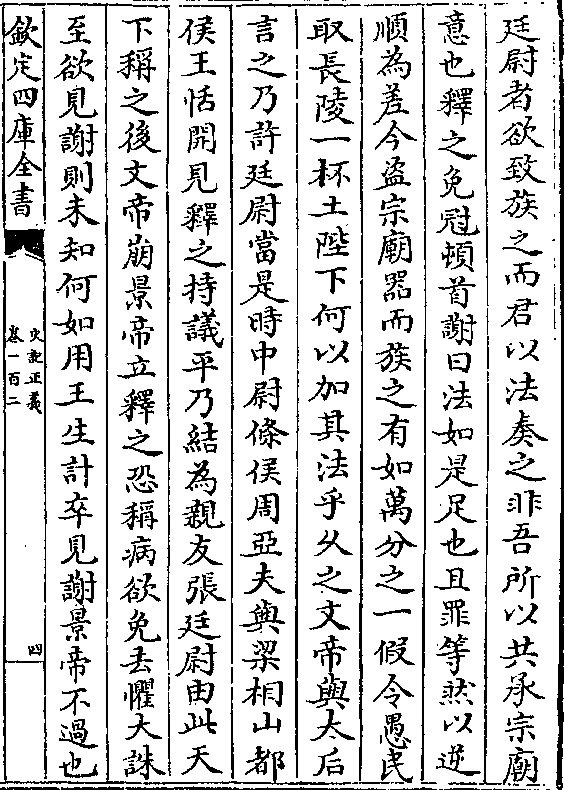 廷尉者欲致族之而君以法奏之非吾所以共承宗廟
意也釋之免冠頓首謝曰法如是足也且罪等然以逆
順為差今盜宗廟器而族之有如萬分之一假令愚民
取長陵一杯土陛下何以加其法乎乆之文帝與太后
言之乃許廷尉當是時中尉條侯周亞夫與梁相山都
侯王恬開見釋之持議平乃結為親友張廷尉由此天
下稱之後文帝崩景帝立釋之恐稱病欲免去懼大誅
至欲見謝則未知何如用王生計卒見謝景帝不過也
欽定四庫全書
史記正義
卷一百二
四